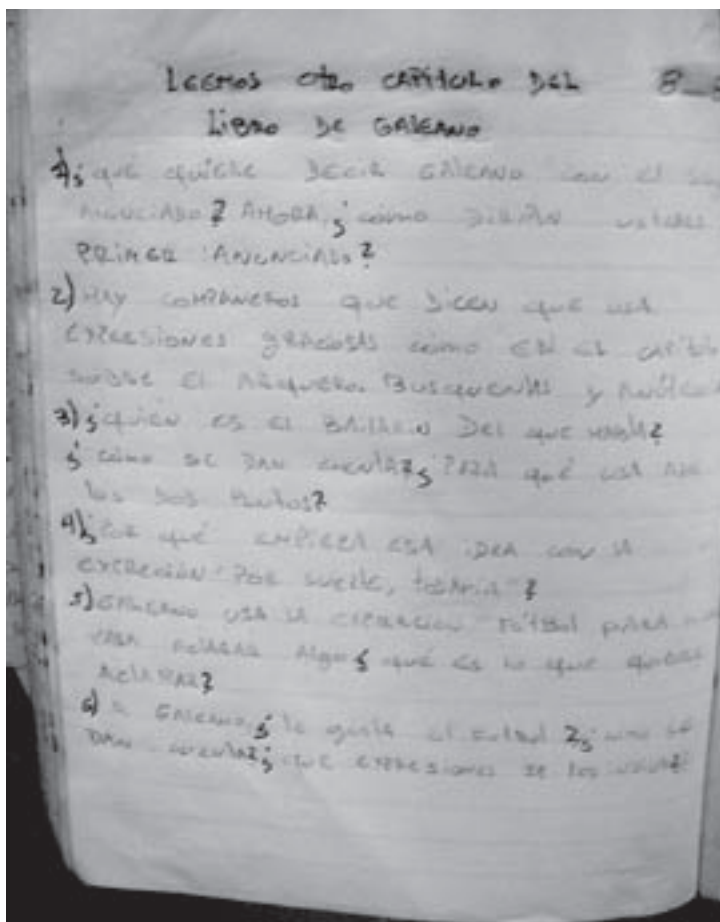 LEEMOS OTRO CAPÍTULO DEL 8_
LIBRO DE GALEANO
1)¿qué quiere DECIR GALEANO con el
ANUNCIADO? AHORA, ¿cómo DIRÍAN ustedes
PRIMER ANUNCIADO?
2) HAY COMPAÑEROS que DICEN que USA
EXPRESIONES graciosas como EN EL
sobre El ARQUERO. BUSQUENLAS y
3) ¿quién es el BAILARIN Del que HABLA?
¿cómo se DAN cuenta? ¿PARA qué usa
los DOS PUNTOS?
4) ¿Por qué EMPIEZA ESA IDEA con la
EXPRECIÓN "POR suerte, TODAVÍA"?
5) GALEANO USA la EXPRECIÓN FÚTBOL
PARA ACLARAR Algo ¿qué es lo que quiere
ACLARAR?
6) A GALEANO, ¿le gusta el futbol? ¿como se
DAN cuenta? ¿que expresiones se los